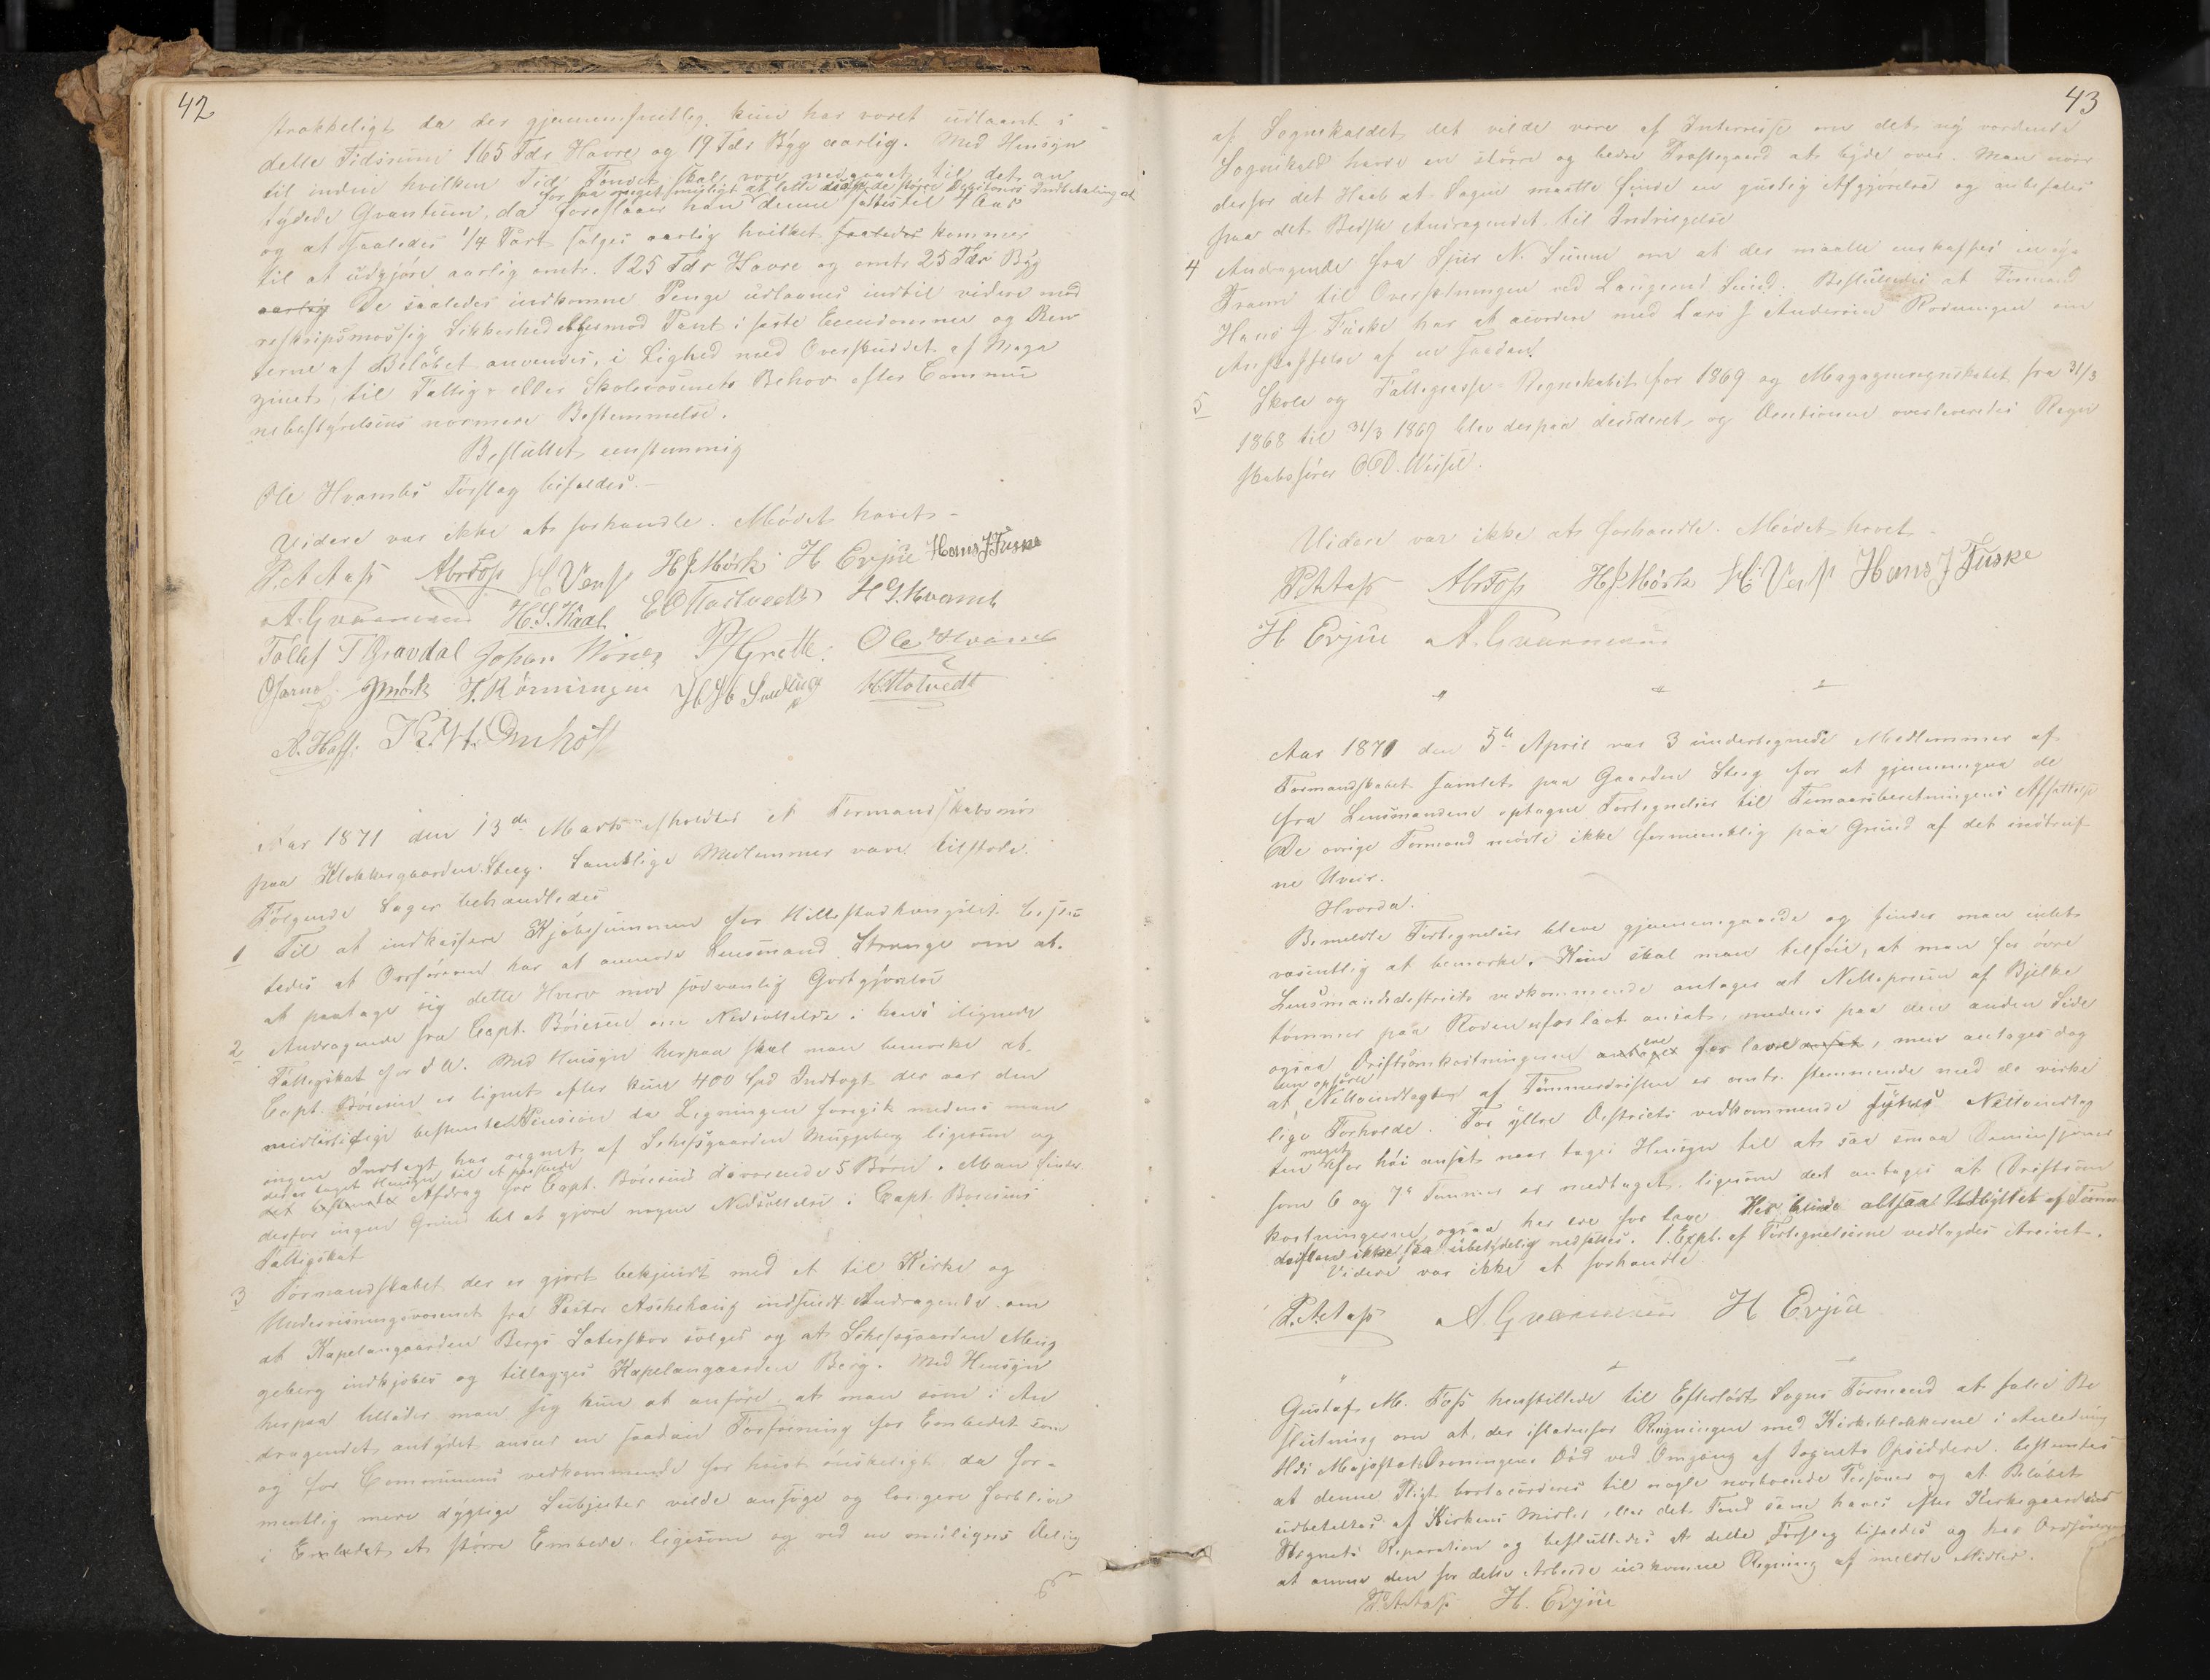 42
strækkeligt, da der gjennemsnitlig kun har været udlaant i
dette Tidsrum 165 Tdr Havre og 19 Tdr Byg aarlig. Med Hensyn
til inden hvilken Tid Fondet skal være nedgaaet til det an
for saa meget muligt at lette de større Debitorers Indbetaling at
tydede Qvantum, da foreslaaer han denne sættes til 4 Aar
og at saaledes 1/4 Part sælges aarlig hvilket saaledes kommer
til at udgjøre aarlig omtr. 125 Tdr Havre og omtr 25 Tdr Byg
aarlig De saaledes indkomne Penge udlaanes indtil videre mod
reskripsmæssig Sikkerhed mod Pant i faste Eiendomme og Ren
terne af Beløbet anvendes, i Lighed med Overskuddet af Maga
zinet, til Fattig- eller Skolevæsenets Behov efter Commu
nebestyrelsens nærmere Bestemmelse.
Besluttet eenstemmig
Ole Hvambs Forslag bifaldes.-
Videre var ikke at forhandle. Mødet hævet-
P.A. Aass Abr Foss H Vens H J Mørk H Evju Hans J Fuske
A. Gvarnæss H. S. Kaal E O Tostvedt H G. Hvamb
Tollef T Gravdal Johan P Grette. Ole Hvamb
J. Rørningen H. Motvedt
A. Hass.
Aar 1871 den 13de Marts afholdtes et Formandskabsmøe
paa Klokkergaarden Steeg. Samtlige Medlemmer vare tilstæde.
Følgende Sager behandledes
1 Til at indkassere Kjøbesummen for Hillestadkvægilet beslut
tedes at Ordføreren har at anmode Lensmand Strange om at
at paatage sig dette Hverv mod sædvanlig Godtgjørelse
2 Andragende fra Capt. Børresen om Nedsættelse i hans ilignede
Fattigskat for d A. Med Hensyn herpaa skal man bemærke at
Capt. Børresen er lignet efter kun 400 Spd Indtægt der var den
midlertidige bestemte Pension da Ligningen foregik medens man
ingen Indtægt har regnet af Sehesgaarden Muggeberg ligesom og
der er taget Hensyn til et passende
Afdrag for Capt. Børresens daværende 5 Børn. Man finder
derfor ingen Grund til at gjøre nogen Nedsættelse i Capt. Børresens
Fattigskat
3 Formandskabet der er gjort bekjendt med et til Kirke og
Underviisningsvæsenet fra Pastor Aschehoug indsendt Andragende om
at Kapelangaarden Bergs Sæterskov sælges og at Sehesgaarden Mug
geberg indkjøbes og tillægges Kapelangaarden Berg. Med Hensyn
herpaa tillader man sig kun at anføre at man som i An
dragendet antydet anseer en saadan Forføining for Embedet som
og for Communens vedkommende for høist ønskeligt da for-
mentlig mere dygtige Subjecter vilde ansøge og længere forblive
i Embedet et større Embede, ligesom og ved en muligens Deling
43
af Sognekaldet det vilde være af Interesse om det ny vordende
Sognekald havde en større og bedre Præstegaard at byde over. Man nærer
derfor det Haab at Sagen maatte finde en gunstig Afgjørelse og anbefales
paa det Bedste Andragendet til Indvilgelse
4 Andragende fra Speir N. Sunne om at der maatte anskaffes en ny
Pram til Oversætningen ved Langerud Sund. Besluttedes at Formand
Hans J. Fuske har at accordere med Lars J. Andersen Rørningen om
Anskaffelse af en saadan.
5 Skole og Fattigcasse-Regnskabet for 1869 og Magazinregnskabet fra 31/3
1868 til 31/3 1869 blev derpaa decideret og Decisionen overleveredes Regn
skabsfører
Videre var ikke at forhandle. Mødet hævet.
P.A. Aass Abr Foss H J Mørk H Vens Hans J Fuske
H Evju A. Gvarnæss
Aar 1871 den 5te April var 3 undertegnede Medlemmer af
Formandskabet samlet paa Gaarden Steeg for at gjennemgaa de
fra Lensmændene optagne Fortegnelser til Femaarsberetningens Affattelse
De øvrige Formænd mødte ikke formeentlig paa Grund af det indtruf
ne Uveir.
Hvorda.
Bemeldte Fortegnelser bleve gjennemgaaede og finder man intet
væsentlig at bemærke. Kun skal man tilføie, at man for øvre
Lensmandsdistricts vedkommende antager at Nettoprisen af Bjelke
tømmer paa Roden er for lavt ansat, medens paa den anden Side
ogsaa Driftsomkostningerne ere for lave, men antages dog
den opførte
at Nettoindtægten af Tømmerdriften er omtr. stemmende med de virke
lige Forholde. For ytre Districts vedkommende synes Nettoindtæg
meget
ten for høi ansat naar tages Hensyn til at saa smaa Dimensjoner
som 6 og 7" Tømmer er medtaget, ligesom det antages at Driftsom
kostningerne ogsaa her ere for lave. Her burde altsaa Udbyttet af Tømmer
driften ikke saa ubetydelig nedsættes. 1 Expl. af Fortegnelserne vedlagdes Archivet.
Videre var ikke at forhandle
P.A. Aass A. Gvarnæss H Evju
Gustaf M. Foss henstillede til Efterløts Sogns Formænd at fatte Be
slutning om at der istedenfor Ringningen med Kirkeklokkerne i Anledning
Hds Majestæt Dronningens Død ved Omgang af Sognets Opsiddere, bestemtes
at denne Pligt bortaccorderes til nogle nærboende Personer og at Beløbet
udbetaltes af Kirkens Midler eller det Fond som haves efter Kirkegaardens
Hægnets Reparation og besluttedes At dette Forslag bifaldes og har Ordføreren
at anvise den for dette Arbeide indkomne Regning af meldte Midler.
P.A. Aass H. Evju